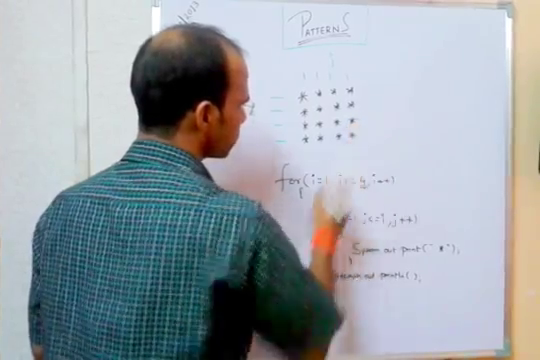 2013
PATTERNS
* * * *
* * * *
* * * *
* * * *
for(i=1, i<=4, i++)
{
j<=i, j++)
System.out.print("*");
}
System.out.println();